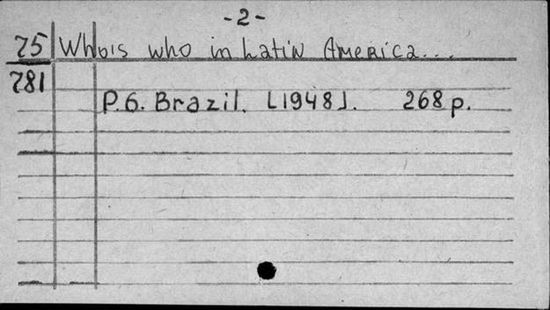 -2-
75 Who's who in Latin America...
781
P.6. Brazil. [1948]. 268 p.